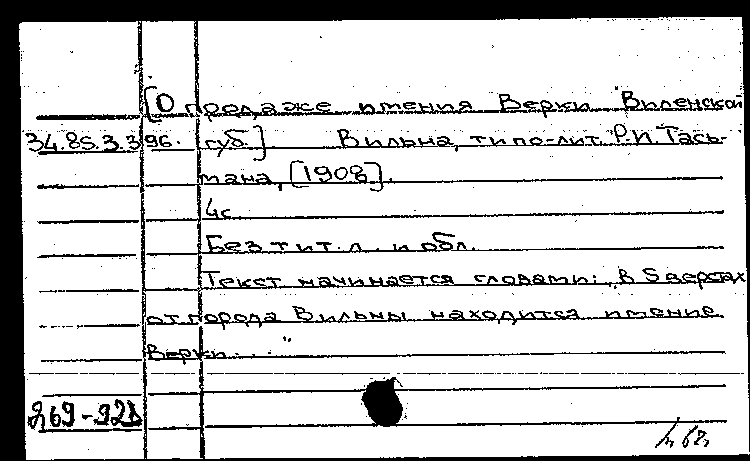 [О продаже имения Верки Виленской
34.85.3.396. губ.] Вильна, типо-лит. Р.И. Тась-
мана, [1908].
4с.
Без тит. л. и обл.
Текст начинается словами: „В 5 верстах
от города Вильны находится имение
Верки..."